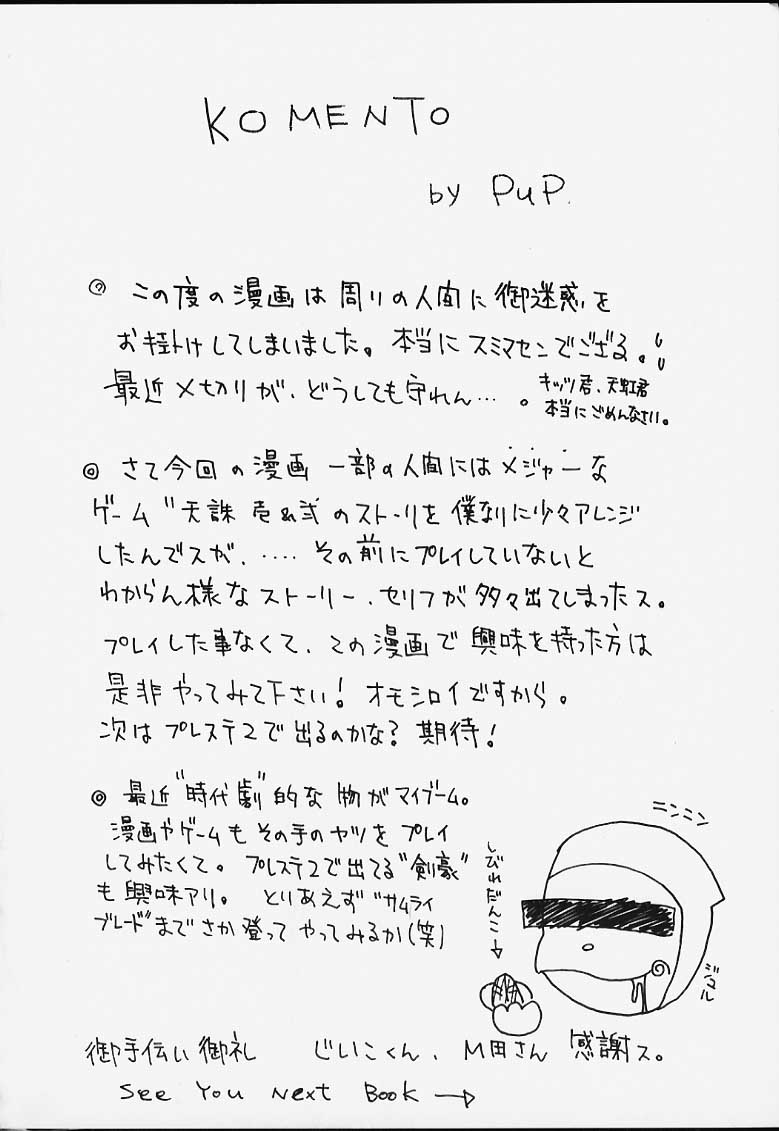 KOMENTO
by PuP.
◎ この度の漫画は周りの人間に御迷惑を
お掛けしてしまいました。本当にスミマセンでござる。
最近〆切りが、どうしても守れん…。
キッツ君、天虹君
本当にごめんなさい。
◎ さて今回の漫画 一部の人間にはメジャーな
ゲーム〝天誅 壱&弐のストーリを僕なりに少々アレンジ
したんでスが、‥‥その前にプレイしていないと
わからん様なストーリー、セリフが多々出てしまったス。
プレイした事なくて、この漫画で興味を持った方は
是非やってみて下さい! オモシロイですから。
次はプレステ2で出るのかな? 期待!
◎ 最近〝時代劇〟的な物がマイブーム。
漫画やゲームもその手のヤツをプレイ
してみたくて。プレステ2で出てる〝剣豪〟
も興味アリ。とりあえず〝サムライ
ブレード〟までさか登ってやってみるか(笑)
ニンニン
しびれだんご→
ジュル
御手伝い御礼 じいこくん、M田さん 感謝ス。
See You Next Book →